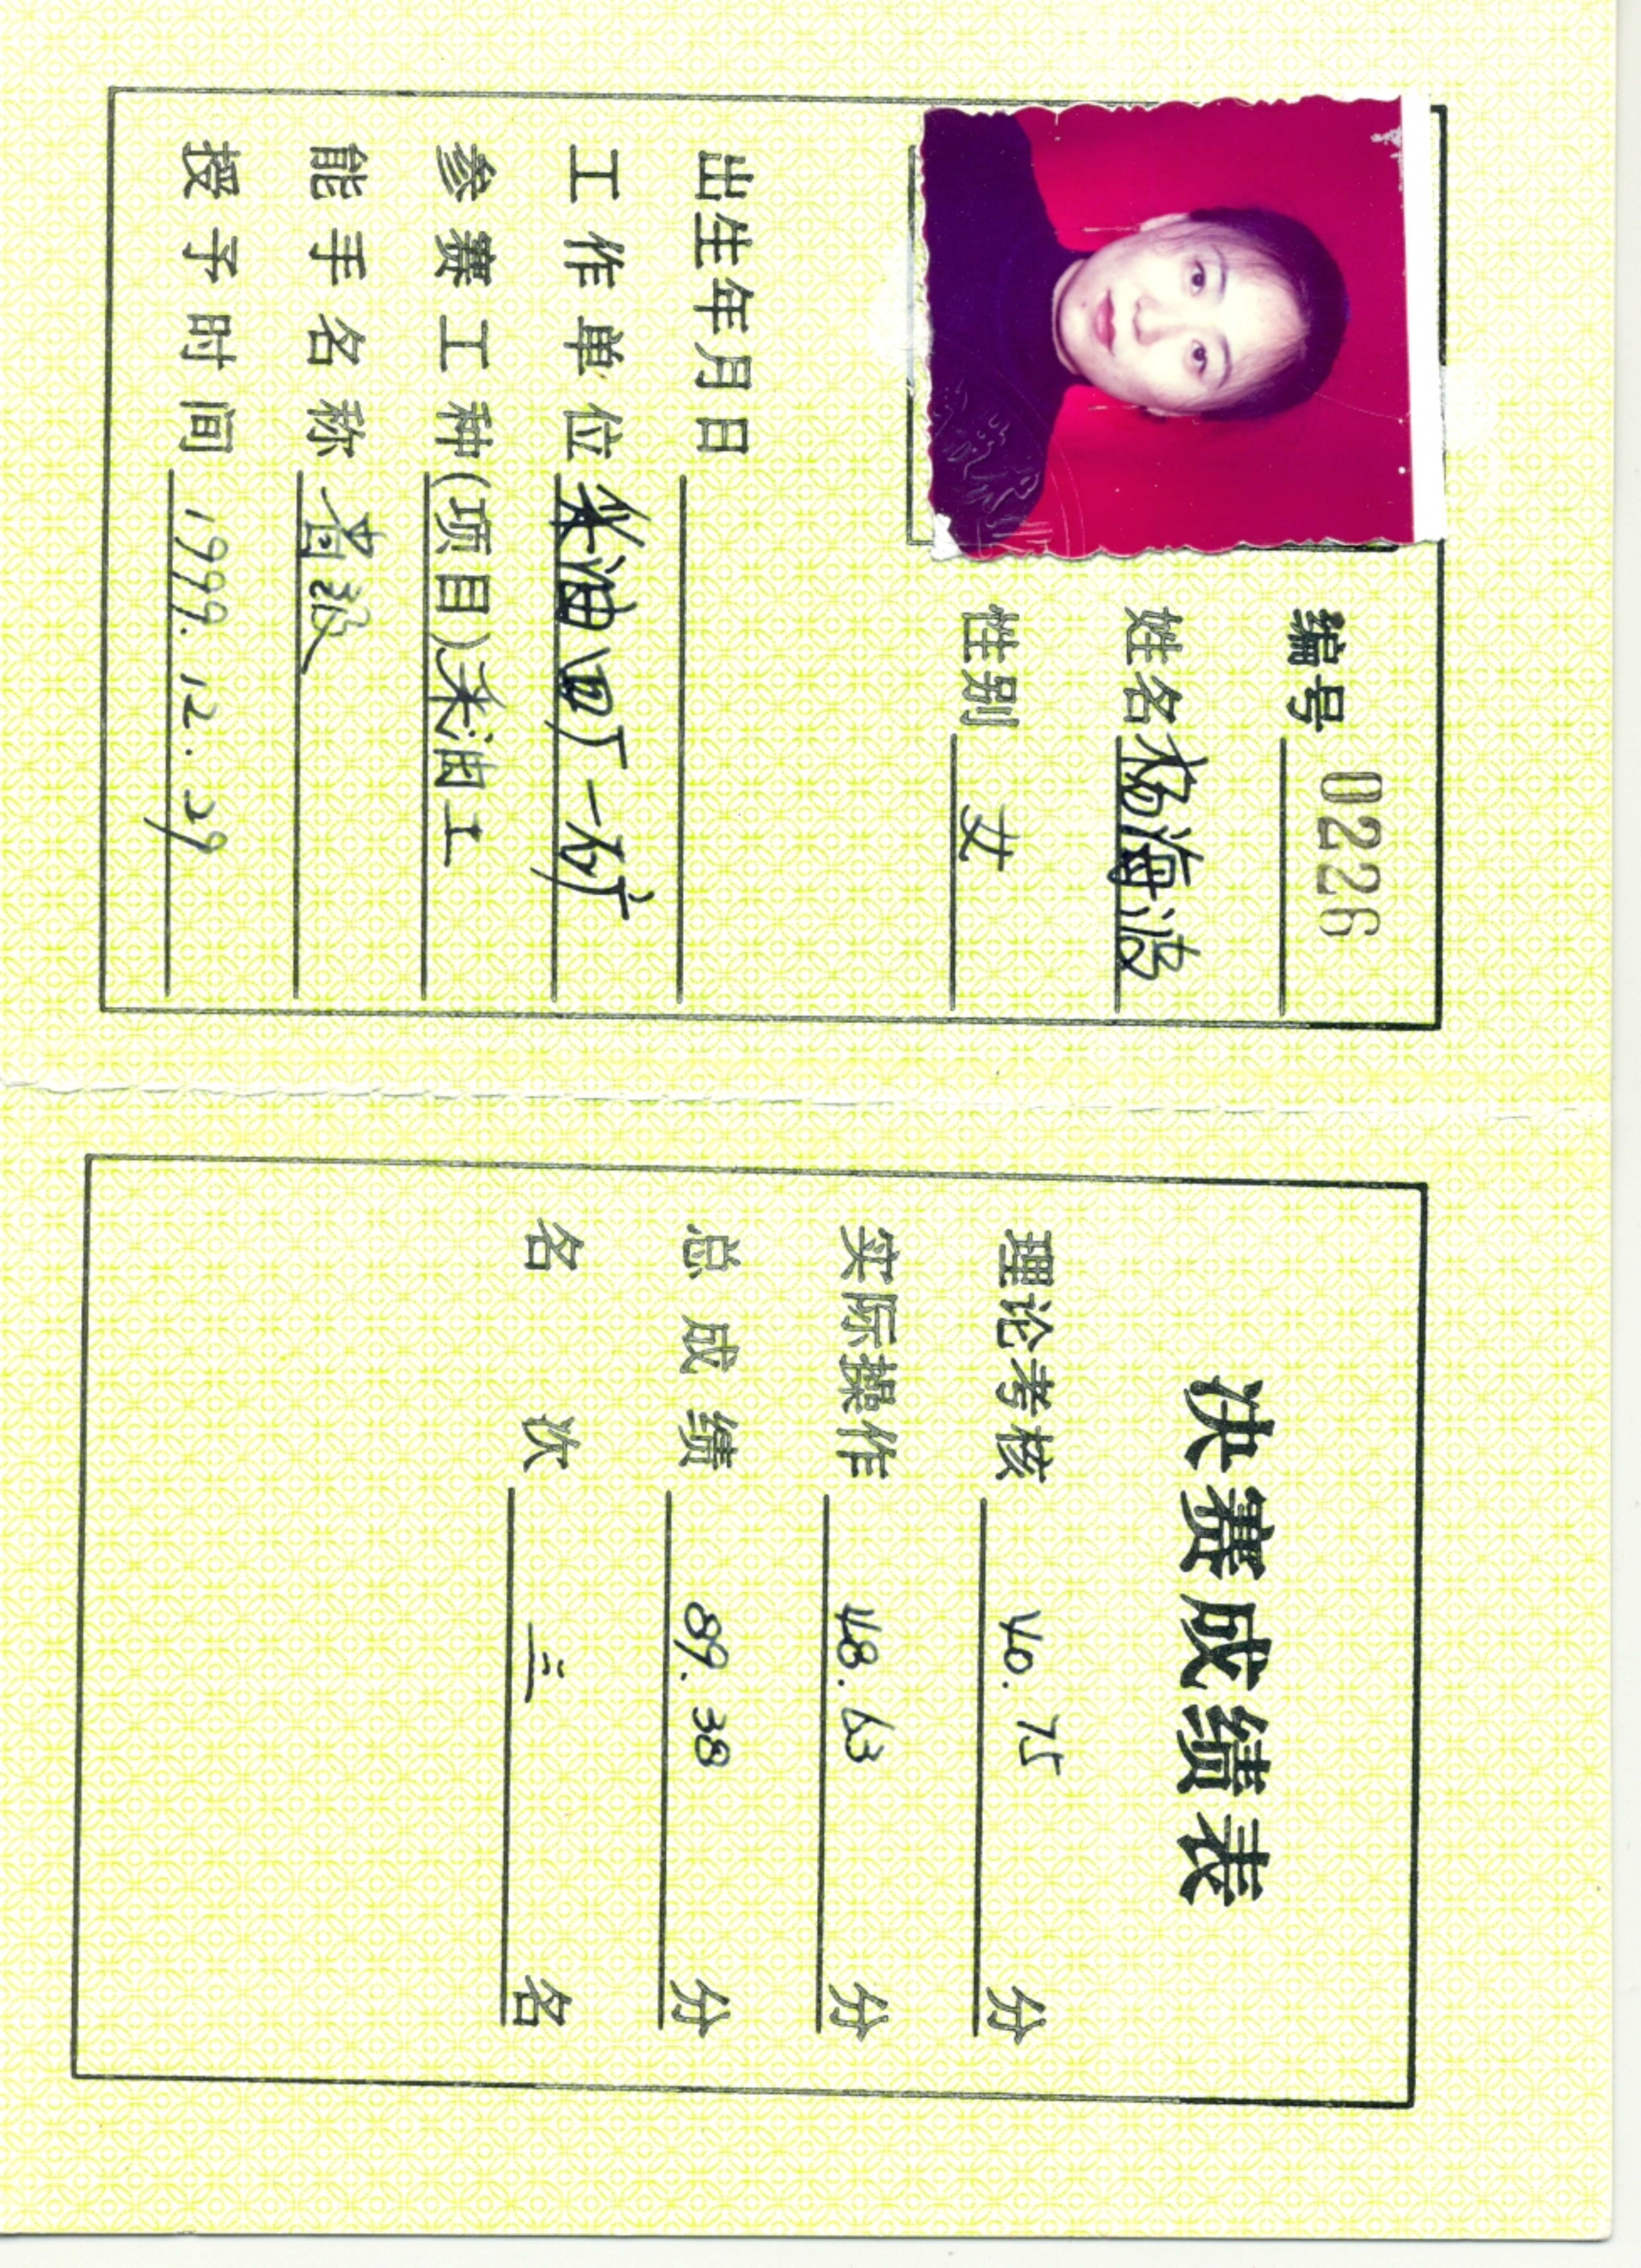 编号 0226
姓名 杨海波
性别 女
出生年月日
工作单位 采油四厂一矿
参赛工种(项目) 采油工
能手名称
授予时间 1999.12.29
决赛成绩表
理论考核 40.75 分
实际操作 48.63 分
总成绩 89.38 分
名次 三 名